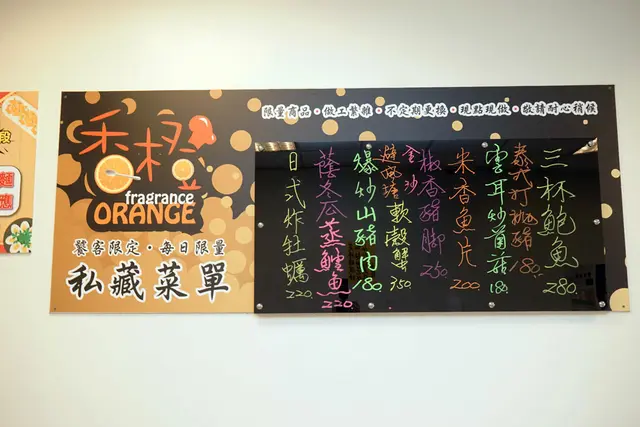 香橙
fragrance
ORANGE
饕客限定·每日限量
私藏菜單
限量商品·做工繁雜·不定期更換·現點現做·敬請耐心稍候
三杯鮑魚 280.
泰式打拋豬 180.
雲耳炒菌菇 180.
米香魚片 200
椒香豬腳 250
金沙
避風塘 軟殼蟹 350
爆炒山豬肉 180.
蔭冬瓜蒸鱈魚 220.
日式炸牡蠣 220.